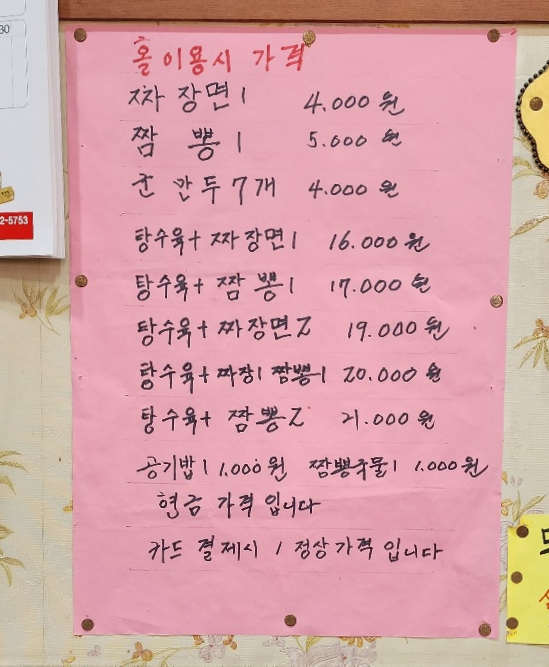 30
2-5753
홀 이용시 가격
짜장면 1 4.000원
짬뽕 1 5.000원
군만두 7개 4.000원
탕수육+짜장면 1 16.000원
탕수육+짬뽕 1 17.000원
탕수육+짜장면 2 19.000원
탕수육+짜장 1 짬뽕 1 20.000원
탕수육+짬뽕 2 21.000원
공기밥 1 1.000원 짬뽕국물 1 1.000원
현금 가격 입니다
카드 결제시 / 정상가격 입니다